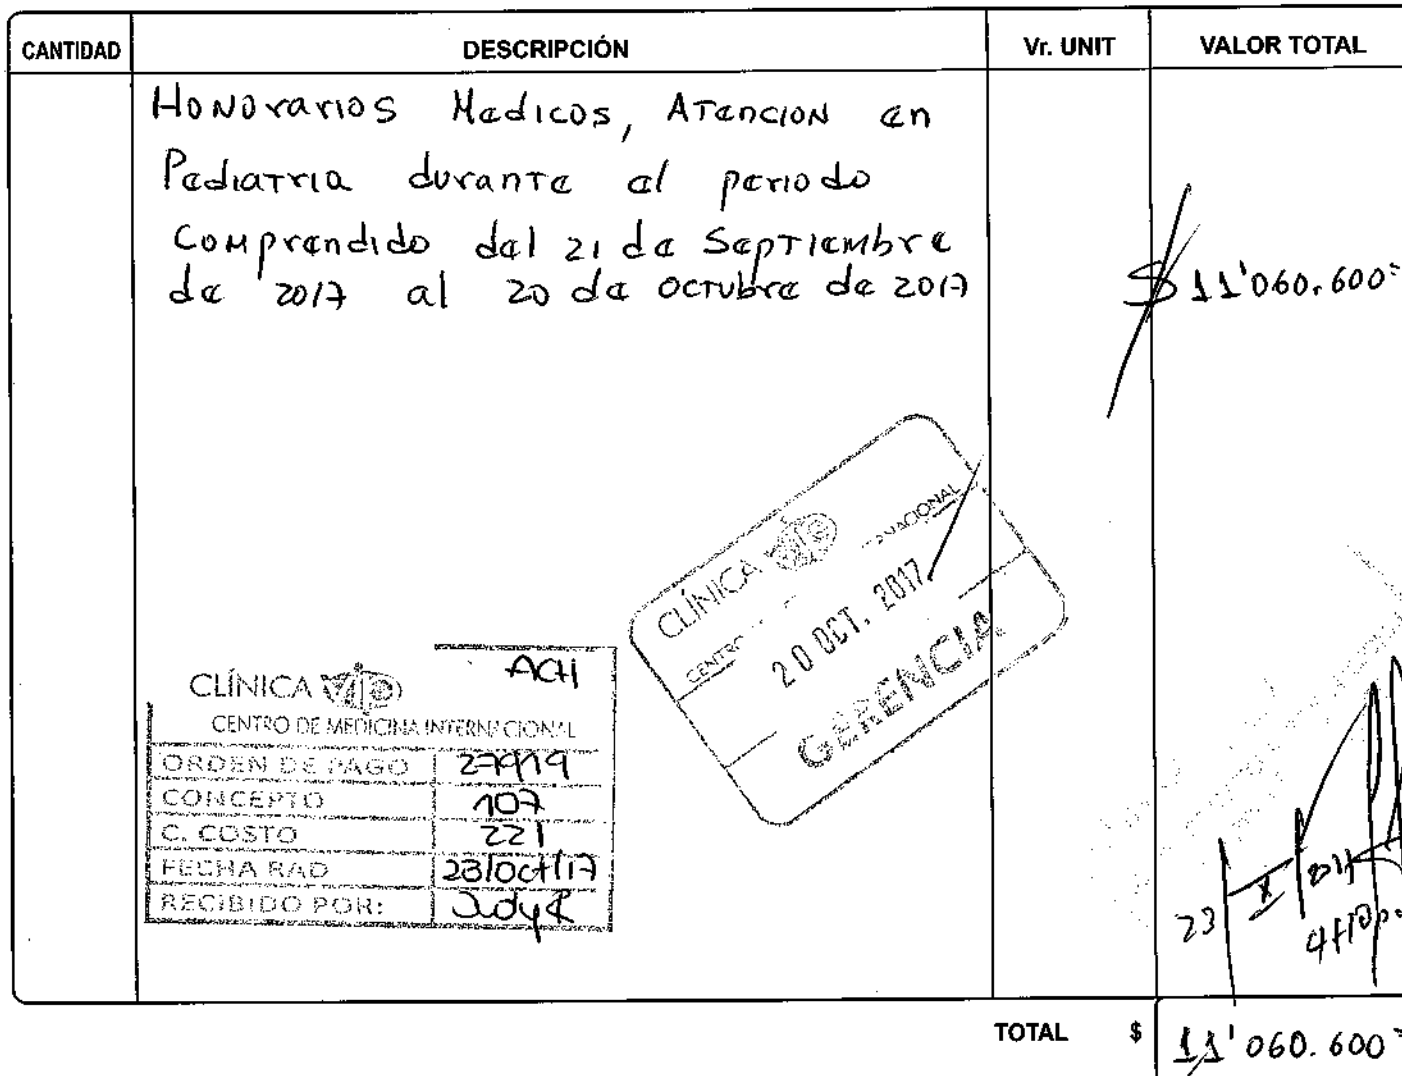 CANTIDAD DESCRIPCIÓN Vr. UNIT VALOR TOTAL
Honorarios Medicos, Atencion en
Pediatria durante el periodo
Comprendido del 21 de Septiembre
de 2017 al 20 de octubre de 2017 $ 11'060.600=
CLÍNICA VIP
CENTRO NACIONAL
20 OCT. 2017
GERENCIA
ACH
CLÍNICA VIP
CENTRO DE MEDICINA INTERNACIONAL
ORDEN DE PAGO 27919
CONCEPTO 107
C. COSTO 221
FECHA RAD 23/Oct/17
RECIBIDO POR: Judy R
23 X 2017
TOTAL $ 11'060.600=